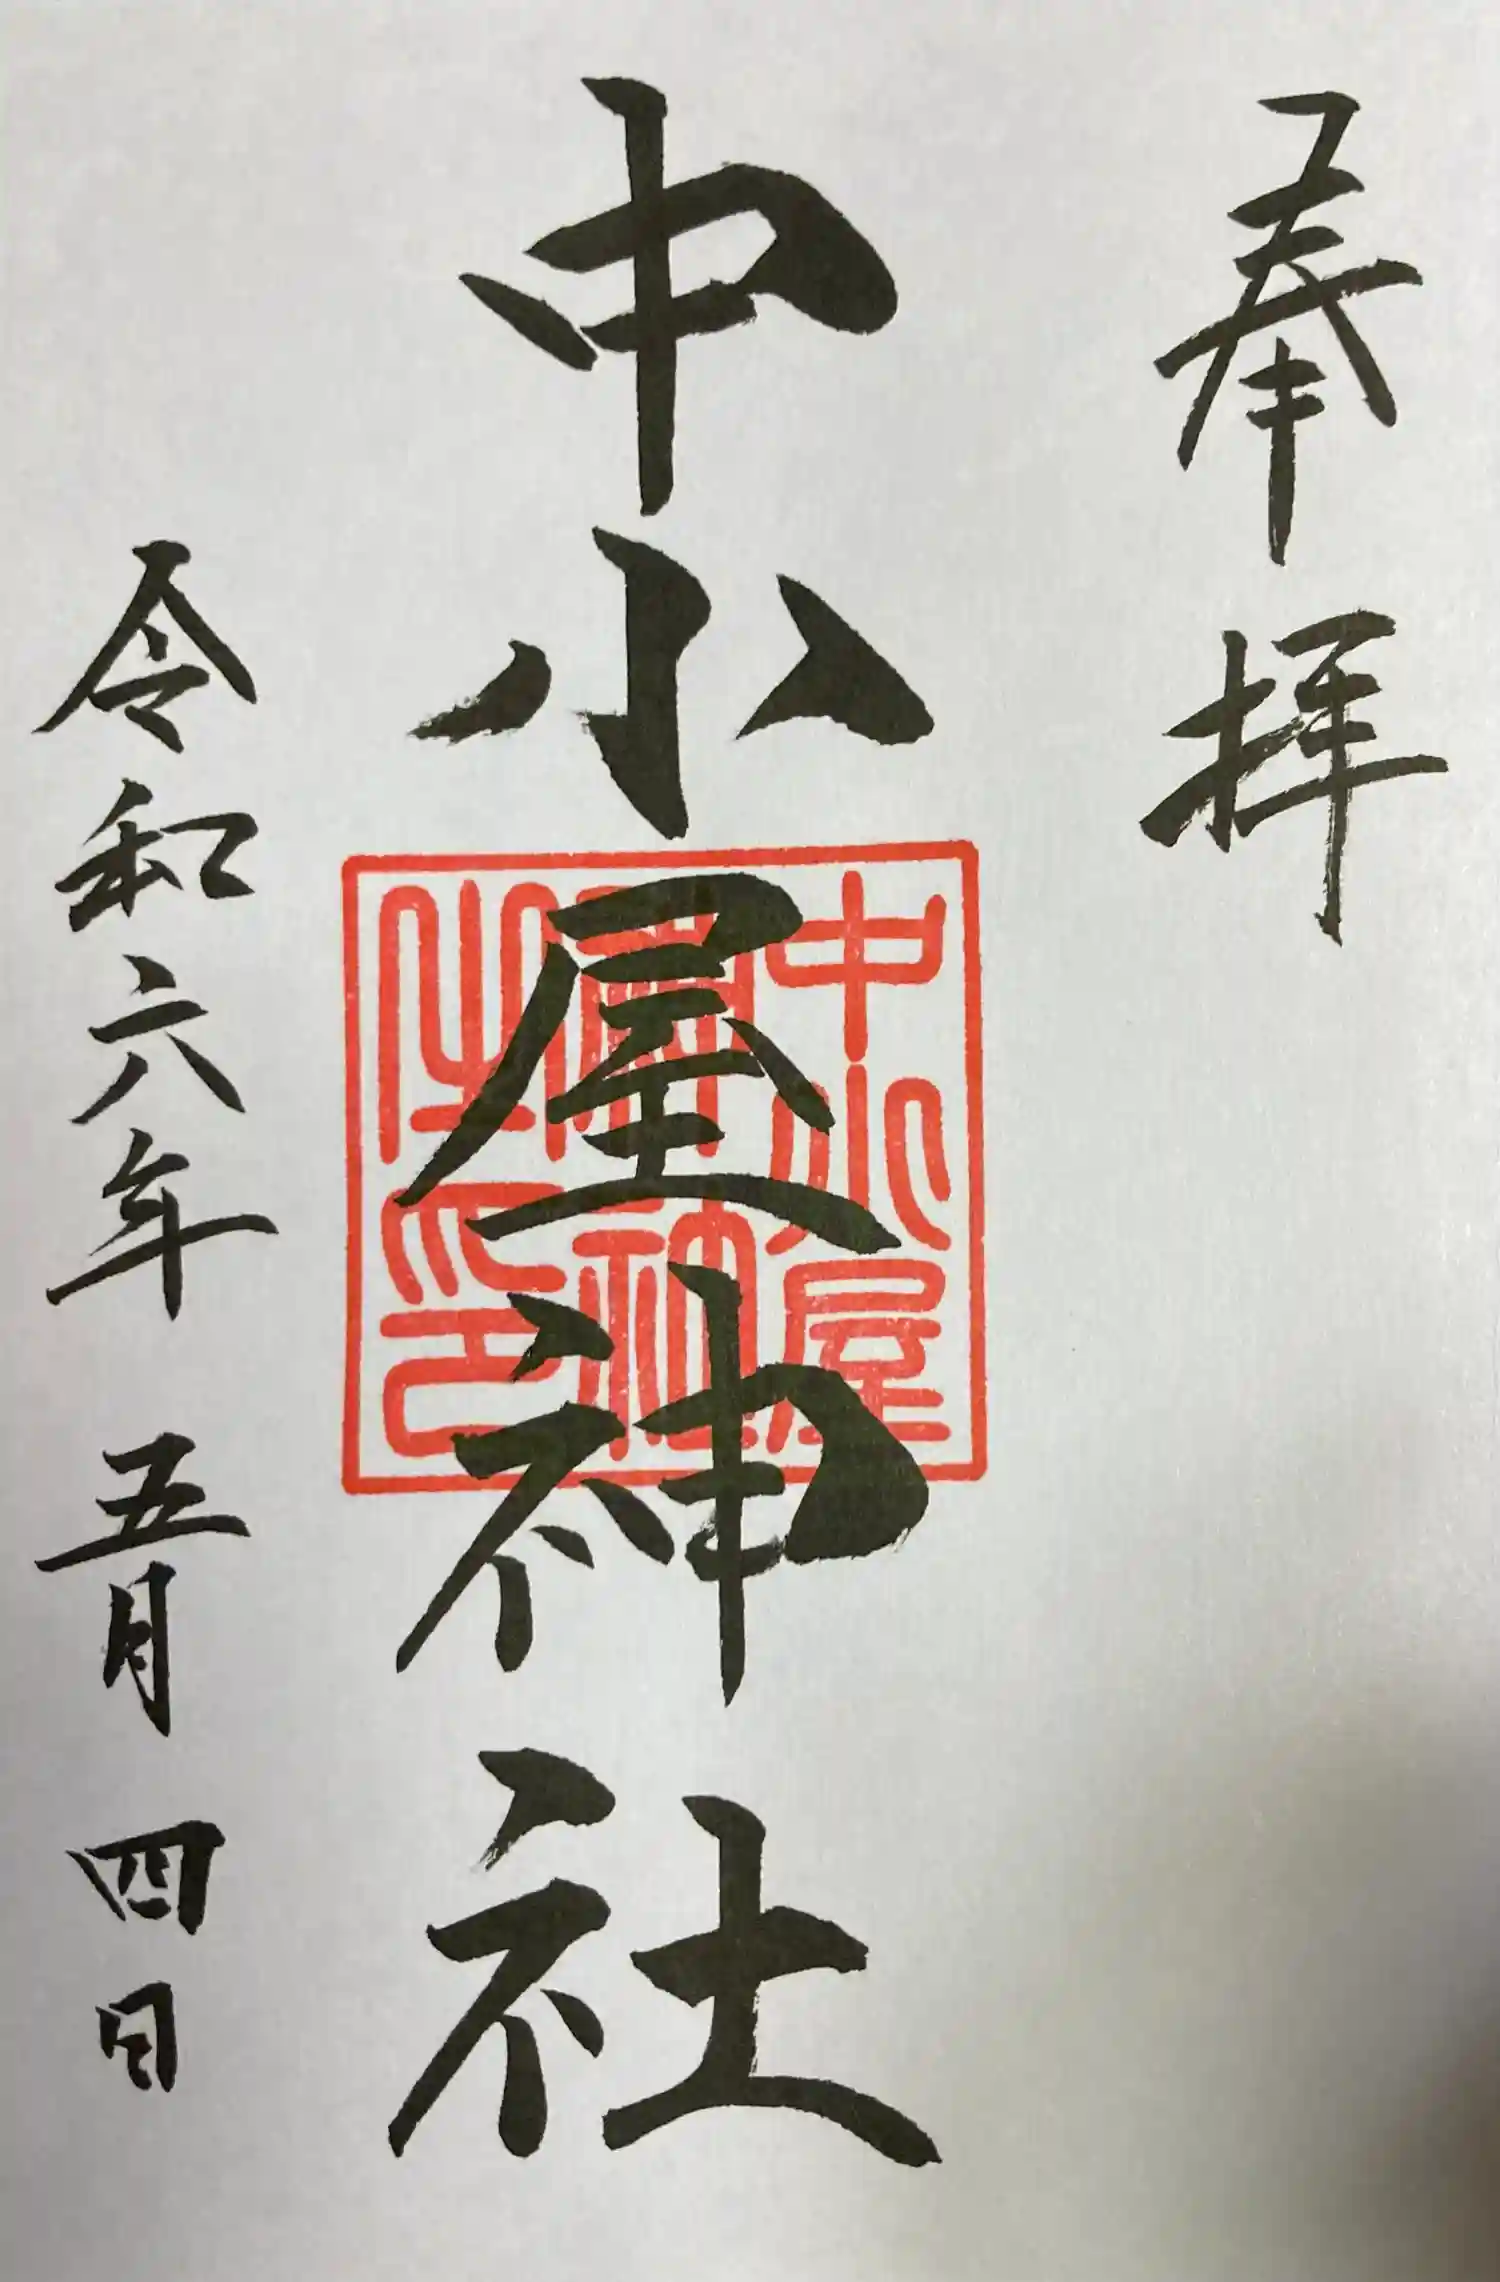 奉拝
中小屋神社
中小屋神社之印
令和六年 五月 四日